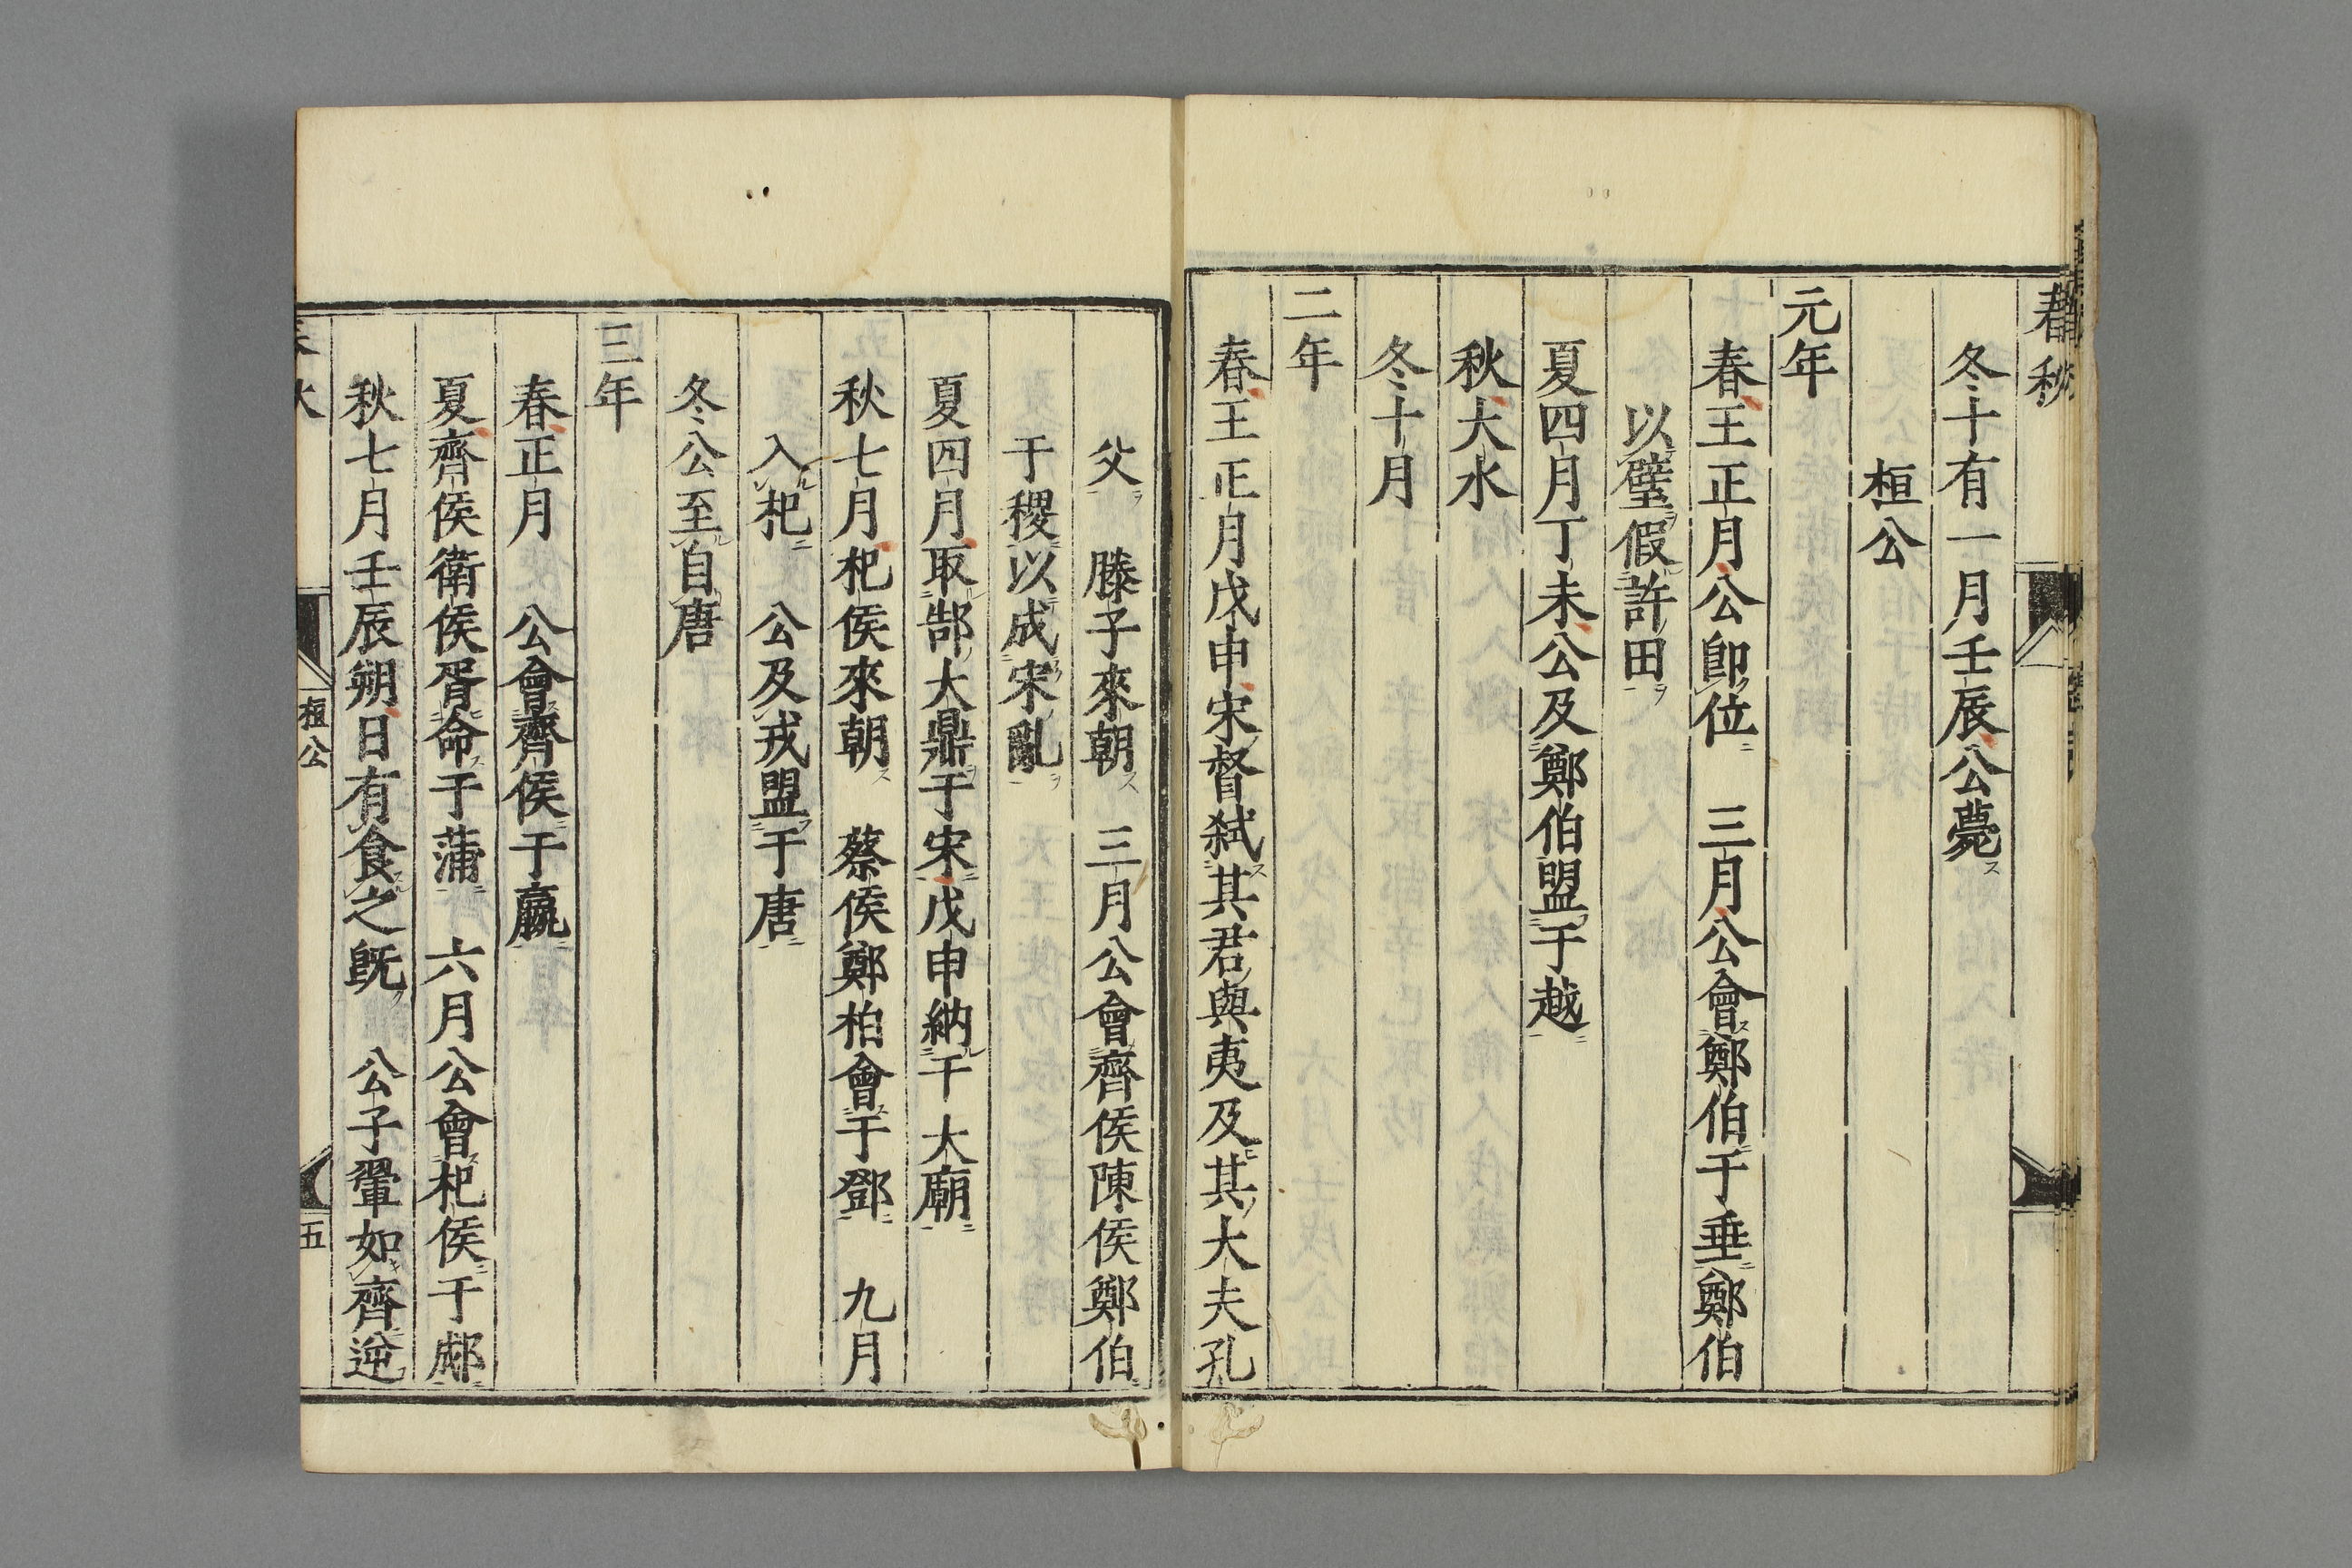 春秋
冬十有一月壬辰公薨ス
桓公
元年
春王正月公卽位ニ　三月公會鄭伯于垂鄭伯
以璧假許田ヲ
夏四月丁未公及鄭伯盟于越ニ
秋大水
冬十月
二年
春王正月戊申宋督弑其君與夷及其大夫孔
父ヲ　滕子來朝ス　三月公會齊侯陳侯鄭伯
于稷以成宋亂ヲ
夏四月取郜大鼎于宋戊申納于大廟ニ
秋七月杞侯來朝ス　蔡侯鄭柏會于鄧ニ　九月
入杞ニ　公及戎盟于唐ニ
冬公至自唐
三年
春正月　公會齊侯于嬴ニ
夏齊侯衛侯胥命于蒲ニ　六月公會杞侯于郕
秋七月壬辰朔日有食之旣　公子翬如齊逆
桓公
五